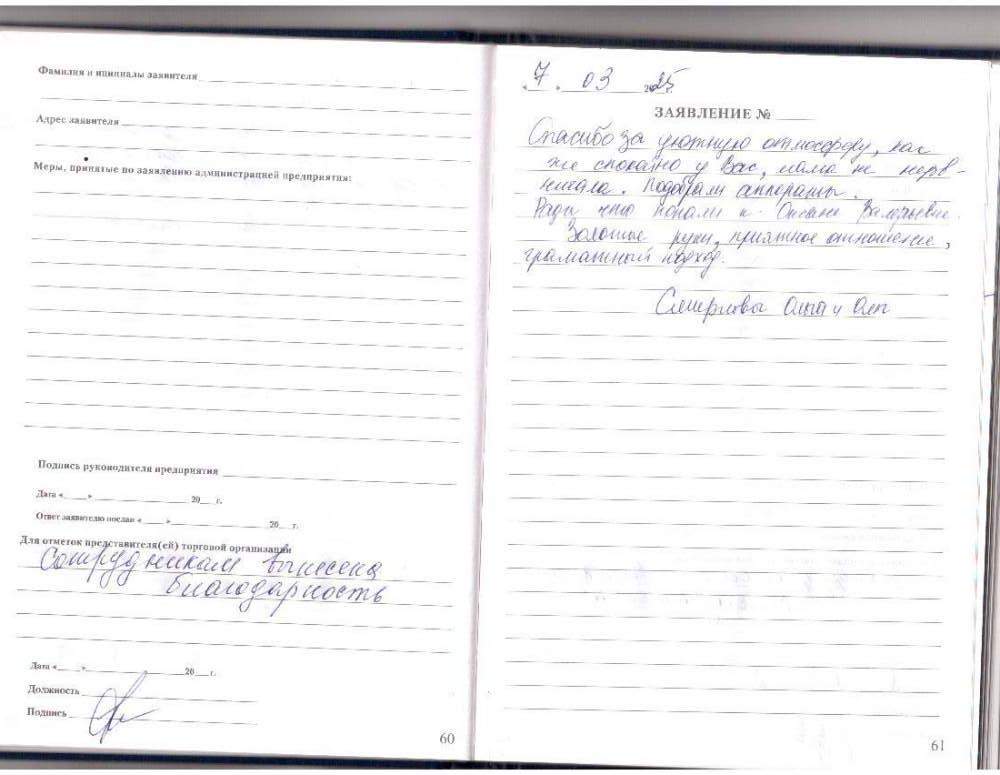 Фамилия и инициалы заявителя
Адрес заявителя
Меры, принятые по заявлению администрацией предприятия:
Подпись руководителя предприятия
Дата «____» ____ 20__ г.
Ответ заявителю послан «____» ____ 20__ г.
Для отметок представителя(ей) торговой организации
Сотрудникам вынесена
благодарность
Дата «____» ____ 20__ г.
Должность
Подпись
60
«7» 03 2025 г.
ЗАЯВЛЕНИЕ № ____
Спасибо за уютную атмосферу, как
же спокойно у Вас, мама не нерв-
ничала. Подобрали аппараты.
Рады что попали к Оксане Валерьевне.
Золотые руки, приятное отношение,
граматный подход.
Смирновы Ольга и
61